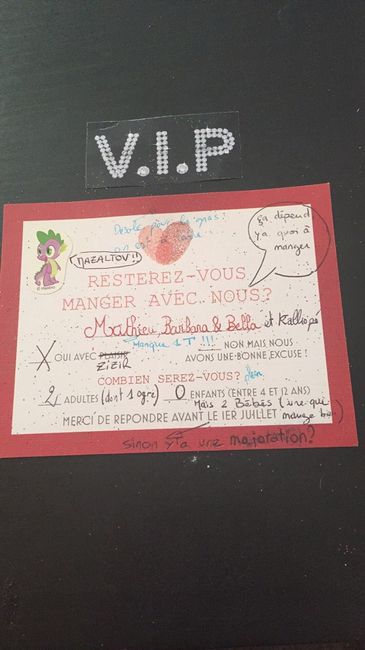 V.I.P
Desolé pour le gras!
on est à table...
ça dépend
y'a quoi à
manger
MAZALTOV!!
RESTEREZ-VOUS
MANGER AVEC NOUS?
Mathieu, Barbara & Bella et Kalliopé
Manque 1 T!!!
X OUI AVEC PLAISIR NON MAIS NOUS
ZIZIR AVONS UNE BONNE EXCUSE!
COMBIEN SEREZ-VOUS?
2 ADULTES (dont 1 ogre) 0 ENFANTS (ENTRE 4 ET 12 ANS)
Mais 2 Bébés (une qui
mange bcp)
MERCI DE REPONDRE AVANT LE 1ER JUILLET
sinon y'a une majoration?